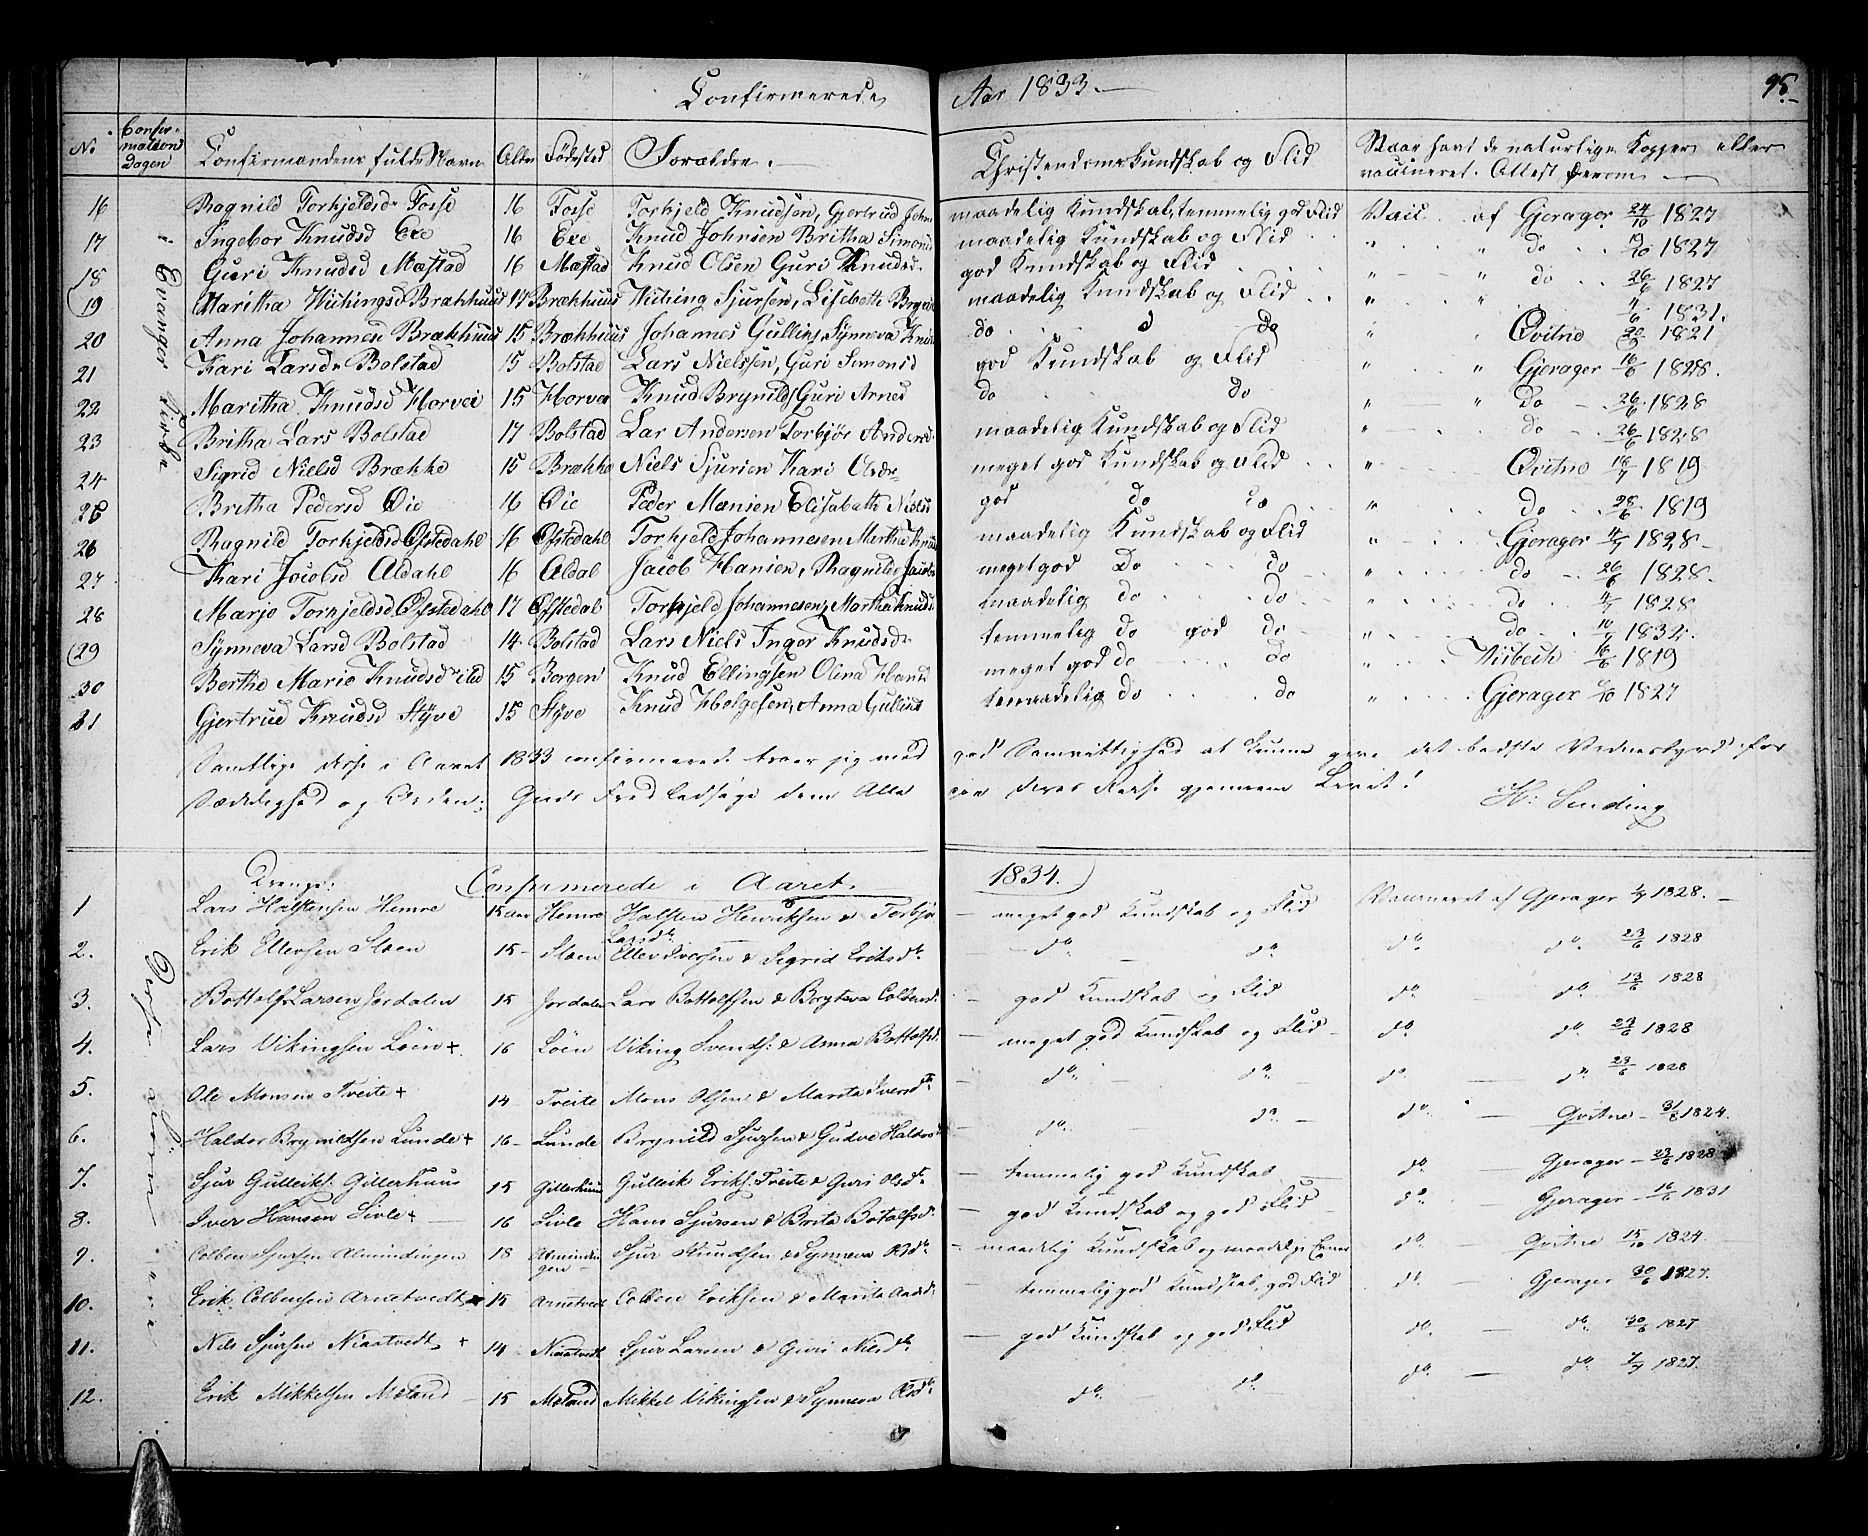 Confirmerede Aar 1833. 95.
No. Confirmations Dagen Confirmandens fulde Navn Alder Fødested Forældre. Christendomskundskab og Flid Naar havt de naturlige Kopper eller vaccineret. Attest derom
i Evanger Kirke
16 Ragnild Torkjeldsd. Fosse 16 Fosse Torkjeld Knudsen, Gjertrud Johns maadelig Kundskab, temmelig god Flid Vacc. af Gjerager 24/10 1827
17 Ingebor Knudsd Exe 16 Exe Knud Johnsen Britha Simons maadelig Kundskab og Flid " " do 1827
18 Guri Knudsd Mæstad 16 Mæstad Knud Olsen Guri Knudsd. god Kundskab og Flid " " do 26/6 1827
19 Maritha Wichingsd Brækhuus 14 Brækhuus Wiching Sjursen, Lisebeth Bryn maadelig Kundskab og Flid " " 1831.
20 Anna Johannesd Brækhuus 15 Brækhuus Johannes Gulliks, Synneva Knud do do " " Qvitne 1821
21 Kari Larsd. Bolstad 15 Bolstad Lars Nielssen, Guri Simonsd god Kundskab og Flid " " Gjerager 16/6 1828.
22 Maritha Knudsd Horvei 15 Horvei Knud Brynilds Guri Arnes do do " " do 26/6 1828
23 Britha Lars Bolstad 17 Bolstad Lar Andersen Torbjør Andersd. maadelig Kundskab og Flid " " do 26/6 1828
24 Sigrid Nielsd Brække 15 Brække Niels Sjursen Kari meget god Kundskab og Flid " Qvitne 18/7 1819
25 Britha Pedersd Øie 16 Øie Peder Monsen Elisabeth Nielsd god do do " do 28/6 1819
26 Ragnild Torkjeldsd Øfstedahl 16 Øfstedahl Torkjeld Johannesen Mertha Knud maadelig Kundskab og Flid " Gjerager 1828
27 Kari Jacobsd Aldahl 16 Aldal Jacob Hansen, Ragnild Jacobs meget god Do do " do 26/6 1828.
28 Marjo Torkjeldsd Øfstedahl 17 Øfstedal Torkjeld Johannesen, Martha Knudsd maadelig do do " do 1828
29 Synneva Larsd Bolstad 14 Bolstad Lars Niels Inger Knudsd. temmelig do god do " do 1832.
30 Berthe Marie Knudsd 15 Borgen Knud Ellingsen Olena Hansd meget god do do " Wisbech 16/6 1819
31 Gjertrud Knudsd Styve 15 Styve Knud Helgesen, Anna Gulliks maadelig do do " Gjerager 1827
Samtlige disse i Aaret 1833 confirmerede troer jeg med god Samvittighed at kunne give det bedste Vidnesbyrd for
Sædelighed og Orden; Guds Fred ledsage dem Alle paa deres Reise gjennem Livet! H: Sending
Drenge: Confirmerede i Aaret 1834.
1 Lars Halstensen Hemre 15 Aar Hemre Halsten Henriksen & Torbjør Larsdr meget god Kundskab og Flid Vaccineret af Gjerager 1828.
2. Erik Ellevsen Sloen 15 Sloen Ellev Iversen & Sigrid Eriksdr. do do do do 23/6 1828
3. Bottolf Larsen Jordalen 15 Jordalen Lars Bottolfsen & Bryteva Colbensd. god Kundskab og Flid do do 13/6 1828
4. Lars Vikingsen Løen + 16 Løen Viking Svends. & Anna Bottolfsd. meget god Kundskab og Flid do do 23/6 1828
5. Ole Monsen Tveite + 14 Tveite Mons Olsen & Marita Iversdr. do do do do 23/6 1828
6. Haldor Brynildsen Lunde + 16 Lunde Brynild Sjursen & Gudve Haldorsd do do do Qvitne 31/8 1824.
7. Sjur Gulleiks. Gillerhuus 15 Gillerhuus Gulleik Eriks. Tveite & Guri Olsdr. temmelig god Kundskab do Gjerager 23/6 1828
8. Iver Hansen Sivle + 16 Sivle Hans Sjursen & Brita Botolfsd. god Kundskab og god Flid do Gjerager 16/6 1831
9. Colben Sjursen Almindingen 18 Almindingen Sjur Knudsen & Synneva Olsdr. maadelig Kundskab og maadelige Evner do Qvitne 15/10 1824.
10. Erik Colbensen Arnetvedt 15 Arnetvedt Colben Eriksen & Marita Aadsd. temmelig god Kundskab, god Flid do Gjerager 30/6 1827.
11. Nils Sjursen Niaatvedt + 14 Niaatvedt Sjur Larsen & Guri Nilsdr. god Kundskab og god Flid do do 30/6 1827
12. Erik Mikkelsen Meland 15 Meland Mikkel Vikingsen & Synneva Olsdr. do do do do 1827.